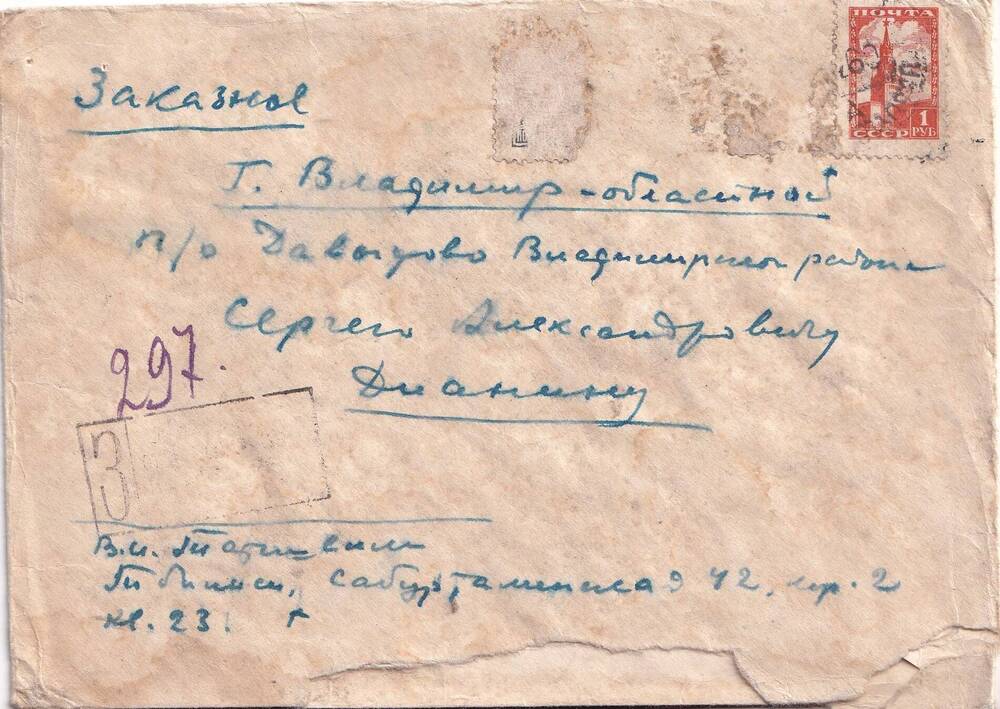 ПОЧТА
1
РУБ
СССР
Заказное
Г. Владимир-областной
п/о Давыдово Владимирского района
Сергею Александровичу
Дианину
297.
З
В.И.
Тбилиси, Сабурталинская 42, кор. 2
кв. 23.